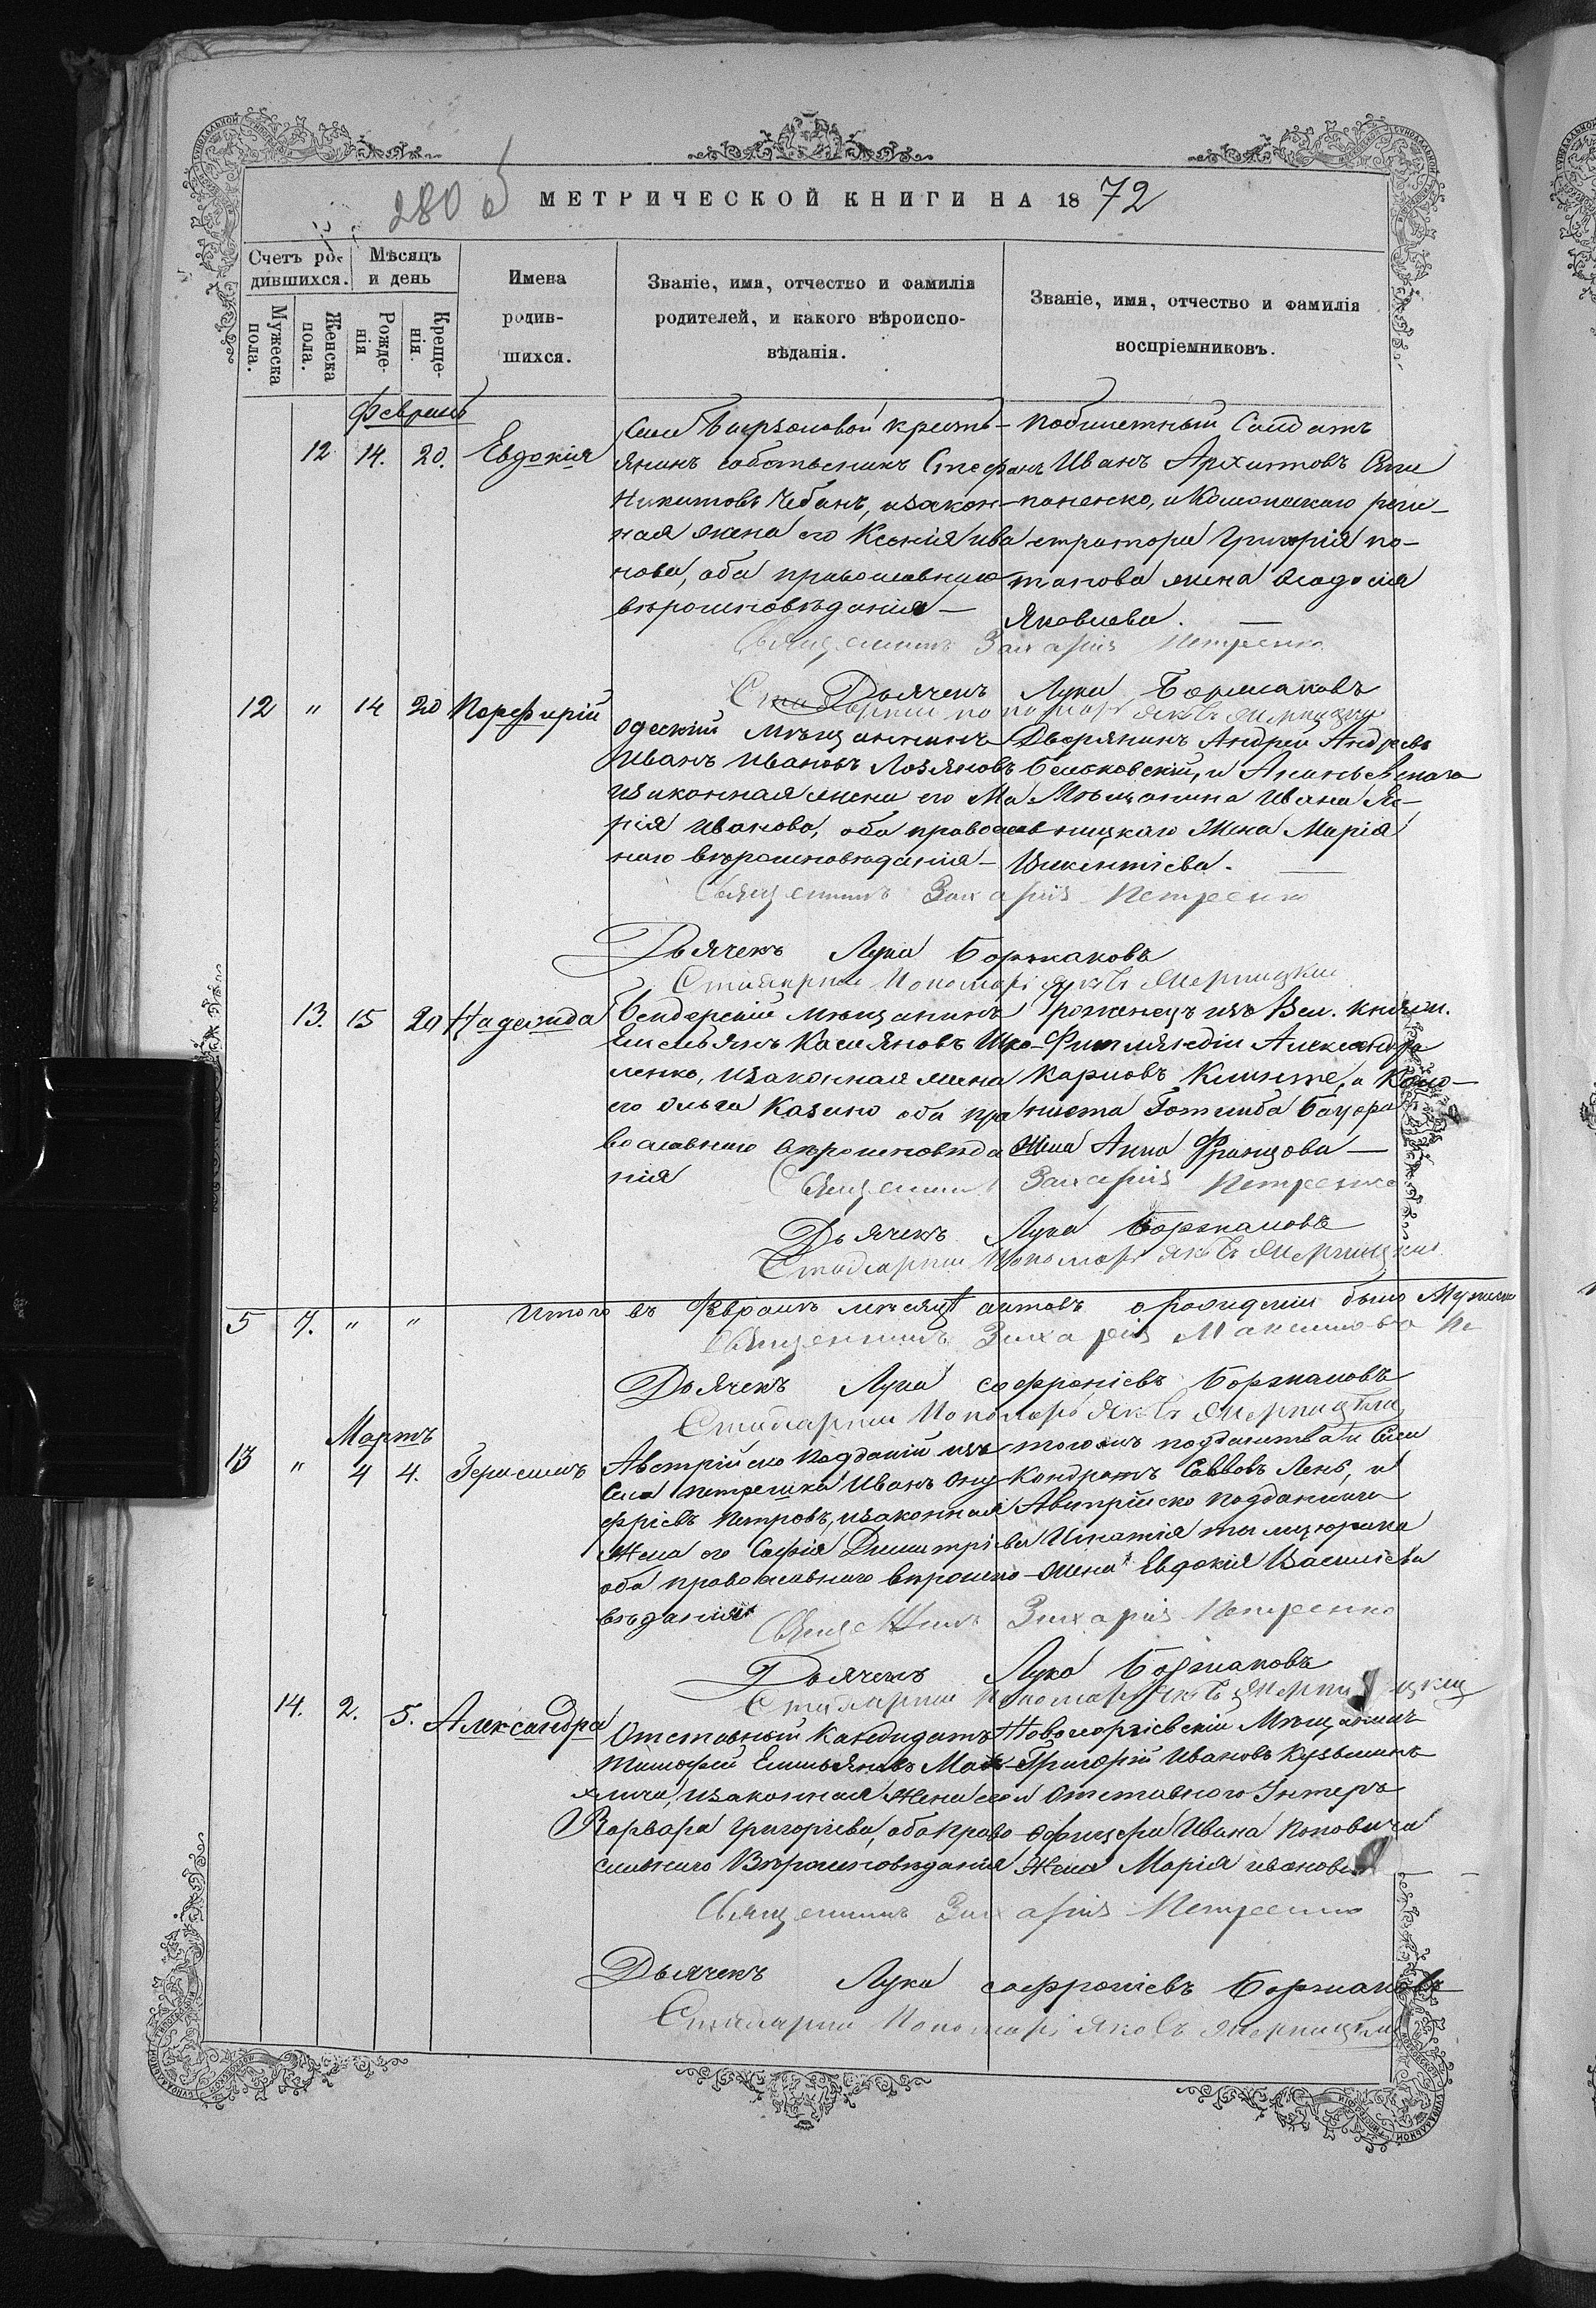 280 об
МЕТРИЧЕСКОЙ КНИГИ НА 1872
Счетъ родившихся.
Мѣсяцъ и день
Мужеска пола.
Женска пола.
Рожденія
Крещенія.
Имена родившихся.
Званіе, имя, отчество и фамилія родителей, и какого вѣроисповѣданія.
Званіе, имя, отчество и фамилія воспріемниковъ.
Февраль
12 14. 20. Евдокія
крестьянинъ собственникъ Стефанъ
Никитовъ Чебанъ, и закон-
ная жена его Ксенія Ива
нова, оба православнаго
вѣроисповѣданія —
Солдатъ
Иванъ Архиповъ
регистратора Григорія По-
тапова жена Ѳеодосія
Яковлева. —
Священникъ Захарія Петренко
Дьячекъ Лука Боржаковъ
12 " 14 20 Порфирій
Одескій Мѣщанинъ
Иванъ Ивановъ Лозяновъ
и законная жена его Ма
рія Иванова, оба православ
наго вѣроисповѣданія —
Дворянинъ Андрей Андреевъ
Бельковскій, и Ананьевскаго
Мѣщанина Ивана Яс-
ницкаго Жена Марія
Викентіева. —
Священникъ Захарія Петренко
Дьячекъ Лука Боржаковъ
Пономарь Яковъ
13. 15 20 Надежда
Бендерскій мѣщанинъ
Емельянъ Касіяновъ Шко-
ленко, и законная жена
его Ольга оба пра
вославнаго вѣроисповѣда
нія
уроженецъ изъ Вел. княж.
Финляндіи Александръ
Карловъ и Коло-
ниста Готлиба Бауера
Жена Анна Францова —
Священникъ Захарія Петренко
Дьячекъ Лука Боржаковъ
Пономарь Яковъ
5 7. " " Итого въ Февралѣ мѣсяцѣ актовъ о рожденіи было Мужеска
Священникъ Захарія
Дьячекъ Лука Софроніевъ Боржаковъ
Пономарь Яковъ
Мартъ
13 " 4 4. Герасимъ
Австрійско Подданій изъ
Села Петрешка Иванъ Ону
фріевъ Петровъ, и законная
Жена его Софія Димитріева
оба православнаго вѣроиспо-
вѣданія
тогожъ подданства и Села
Кондратъ Саввовъ Ленъ, и
Австрійско подданнаго
Игнатія
жена Евдокія Василіева
Священникъ Захарія Петренко
Дьячекъ Лука Боржаковъ
Пономарь Яковъ
14. 2. 5. Александра
Отставный Кандидатъ
Тимофей Емельяновъ
и законная Жена его
Варвара Григоріева, оба Право
славнаго Вѣроисповѣданія
Новогеоргіевскій Мѣщанинъ
Григорій Ивановъ Кузьминъ
и Отставного Унтеръ
Офицера Ивана Поповича
Жена Марія Иванова
Священникъ Захарія Петренко
Дьячекъ Лука Софроніевъ Боржаковъ
Пономарь Яковъ